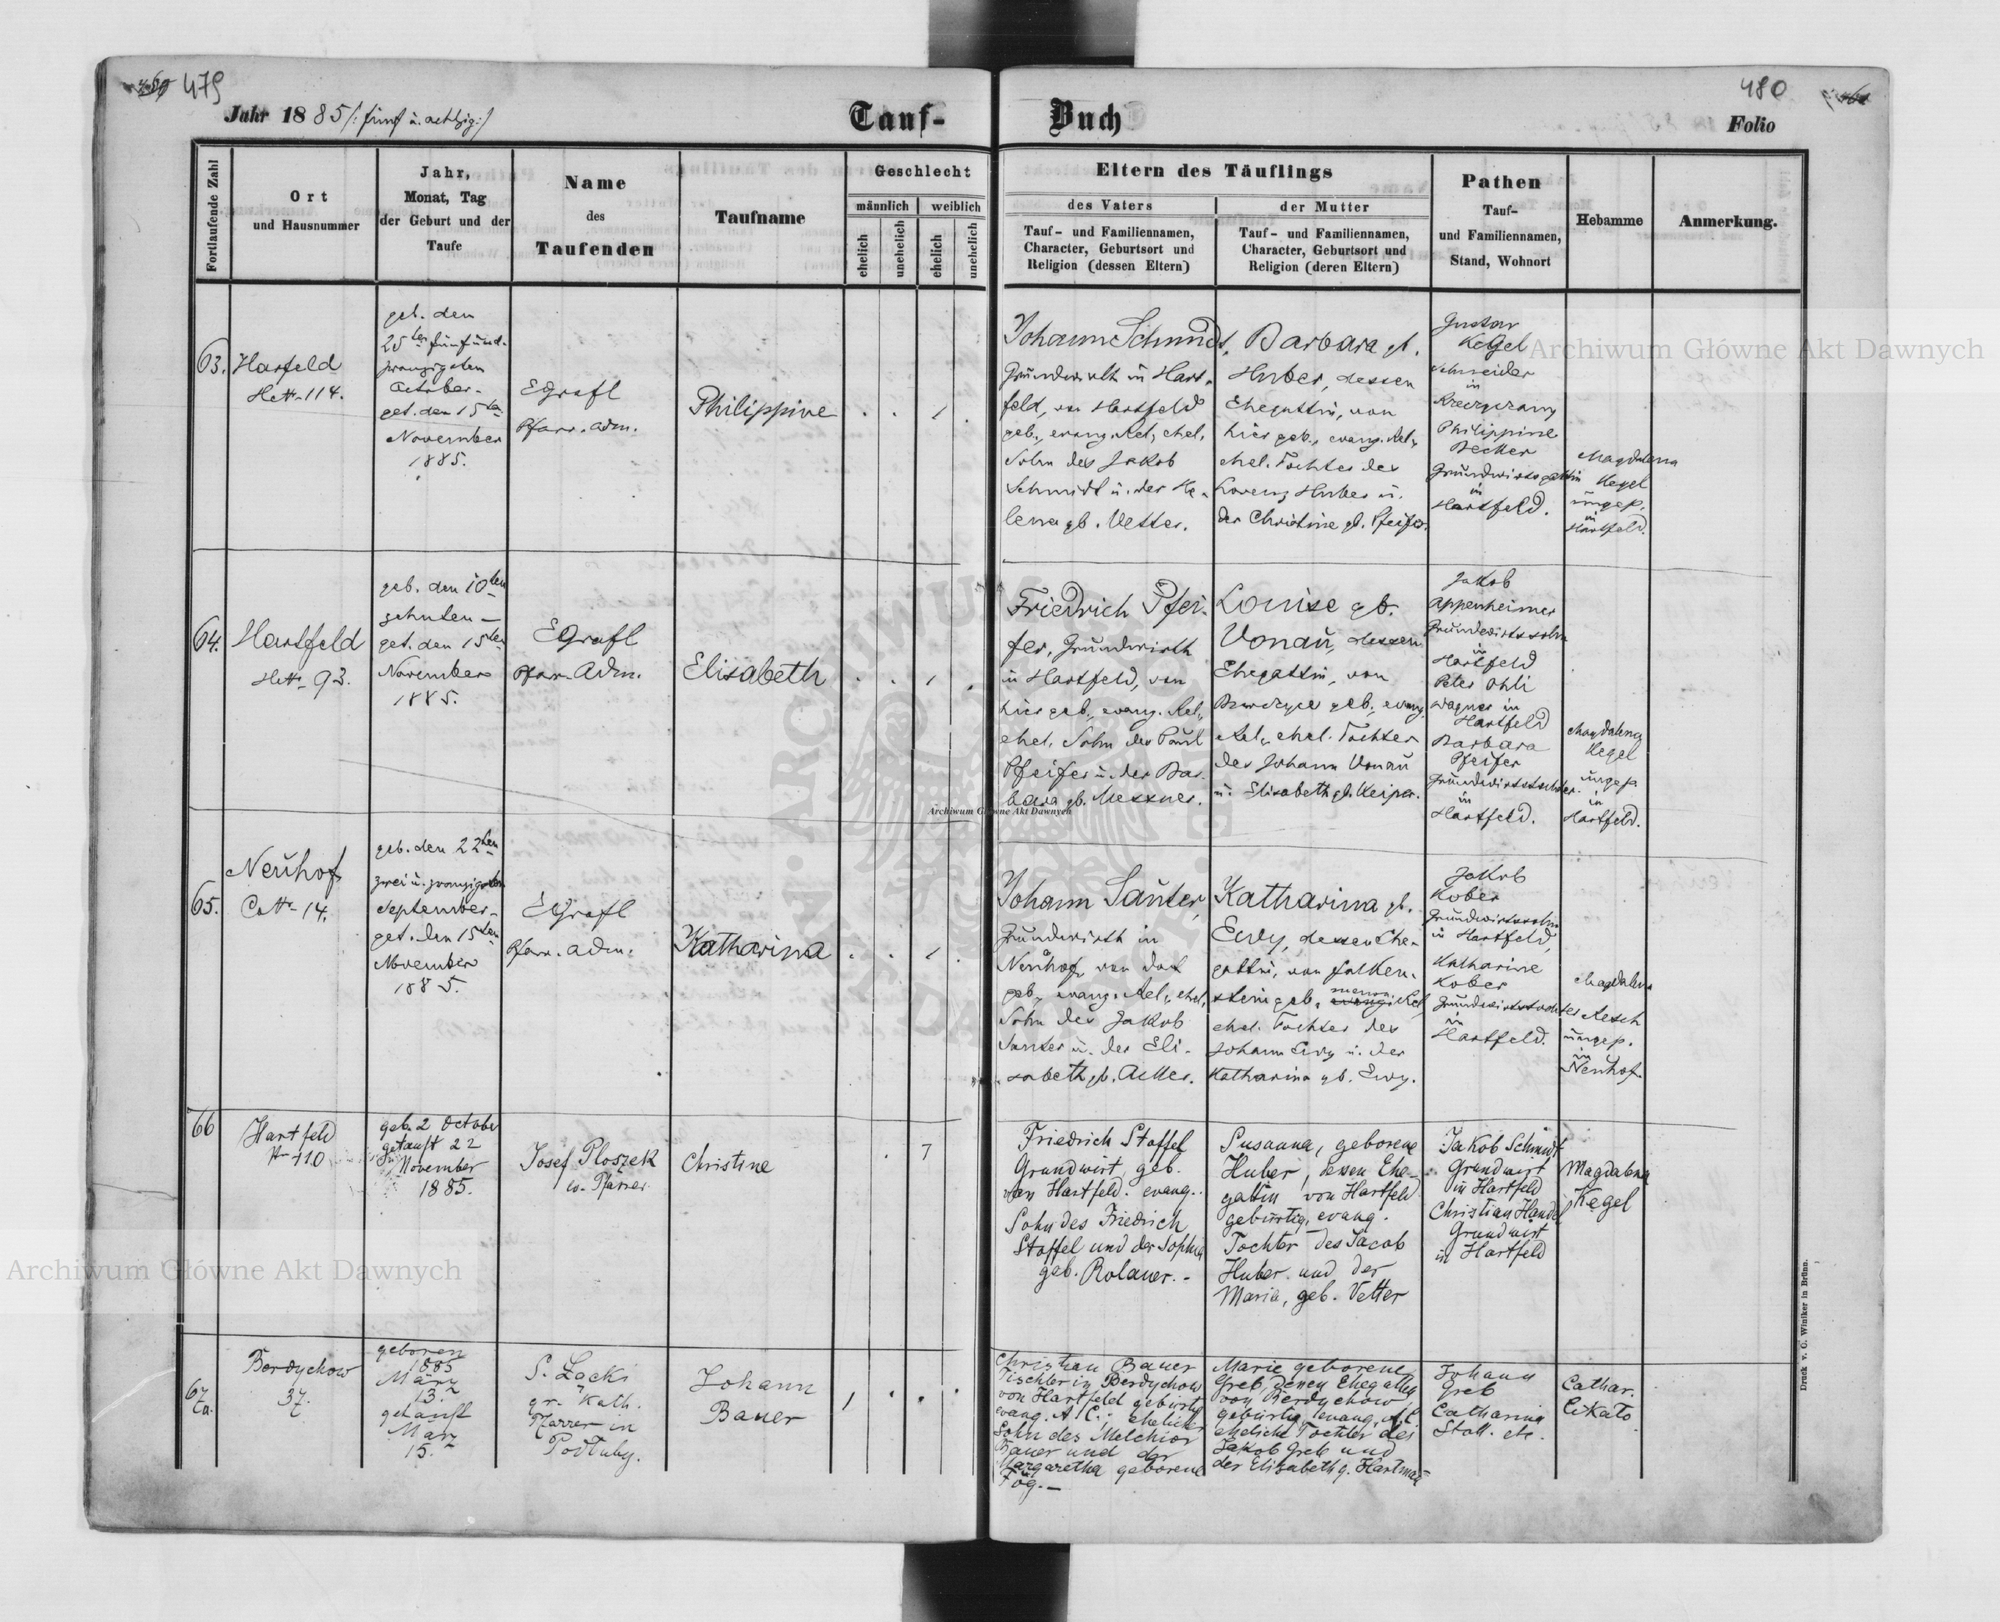 479
Jahr 1885 /: fünf u. achtzig :/
Tauf-
Buch
480
Folio
Fortlaufende Zahl
Ort
und Hausnummer
Jahr,
Monat, Tag
der Geburt und der
Taufe
Name
des
Taufenden
Taufname
Geschlecht
männlich
weiblich
ehelich
unehelich
ehelich
unehelich
Eltern des Täuflings
des Vaters
Tauf- und Familiennamen,
Character, Geburtsort und
Religion (dessen Eltern)
der Mutter
Tauf- und Familiennamen,
Character, Geburtsort und
Religion (deren Eltern)
Pathen
Tauf-
und Familiennamen,
Stand, Wohnort
Hebamme
Anmerkung.
63.
Hartfeld
114.
geb. den
25ten fünfund-
zwanzigsten
October-
get. den 15ten
November
1885.
EGrafl
Pfarr. Adm.
Philippine
Johann Schmidt,
Grundwirth in Hart-
feld, von Hartfeld
geb., evang. Rel., ehel.
Sohn des Jakob
Schmidt u. der He-
lena gb. Vetter.
Barbara gb.
Huber, dessen
Ehegattin, von
hier geb., evang. Rel.,
ehel. Tochter des
Lorenz Huber u.
der Christine gb. Pfeifer.
Gustav
Kegel
Schneider
in
Philippine
Becker
Grundwirtsgattin
in
Hartfeld.
Magdalena
Kegel
ungep.
in
Hartfeld.
64.
Hartfeld
93.
geb. den 10ten
zehnten -
get. den 15ten
November
1885.
EGrafl
Pfarr. Adm.
Elisabeth
Friedrich Pfei-
fer, Grundwirth
in Hartfeld, von
hier geb., evang. Rel.,
ehel. Sohn des Paul
Pfeifer u. der Bar-
bara gb. Messner.
Louise gb.
Vonau, dessen
Ehegattin, von
geb., evang.
Rel., ehel. Tochter
des Johann Vonau
u. Elisabeth gb. Keiper.
Jakob
Appenheimer
Grundwirtssohn
in
Hartfeld
Peter Ohli
Wagner in
Hartfeld
Barbara
Pfeifer
Grundwirtstochter
in
Hartfeld.
Magdalena
Kegel
ungep.
in
Hartfeld.
65.
Neuhof
14.
geb. den 22ten
zwei u. zwanzigsten
September-
get. den 15ten
November
1885.
EGrafl
Pfarr. Adm.
Katharina
Johann Sauter,
Grundwirth in
Neuhof, von dort
geb., evang. Rel., ehel.
Sohn des Jakob
Sauter u. der Eli-
sabeth gb. Acker.
Katharina gb.
Ewy, dessen Ehe-
gattin, von Falken-
stein geb. menon. Rel,
ehel. Tochter des
Johann Ewy u. der
Katharina gb. Ewy.
Jakob
Kober
Grundwirtssohn
in Hartfeld,
Katharine
Kober
Grundwirtstochter
in
Hartfeld.
Magdalena
Resch
ungep.
in
Neuhof.
66
Hartfeld
110
geb. 2 October
getauft 22
November
1885.
Josef Ploszek
ev. Pfarrer
Christine
Friedrich Stoffel
Grundwirt, geb.
von Hartfeld. evang.
Sohn des Friedrich
Stoffel und der Sophia
geb. Rolauer. -
Susanna, geborene
Huber, dessen Ehe-
gattin von Hartfeld
gebürtig, evang.
Tochter des Jacob
Huber und der
Maria, geb. Vetter
Jakob Schmidt
Grundwirt
in Hartfeld
Christian Handel
Grundwirt
in Hartfeld
Magdalena
Kegel
67
a.
Berdychow
37.
geboren
1885
März
13.
getauft
März
15.
S. Lacki
gr. Kath.
Pfarrer in
Podluby.
Johann
Bauer
Christian Bauer
Tischler in Berdychow
von Hartfeld gebürtig
evang. A. C., ehelicher
Sohn des Melchior
Bauer und der
Margaretha geborene
Füg. -
Marie geborene
Greb dessen Ehegattin
von Berdychow
gebürtig, evang. A. C.
eheliche Tochter des
Jakob Greb und
der Elisabeth g. Hartman
Johann
Greb
Catharina
Stoll. etc.
Cathar.
Cikato
Druck v. G. Winiker in Brünn.
Archiwum Główne Akt Dawnych
Archiwum Główne Akt Dawnych
Archiwum Główne Akt Dawnych